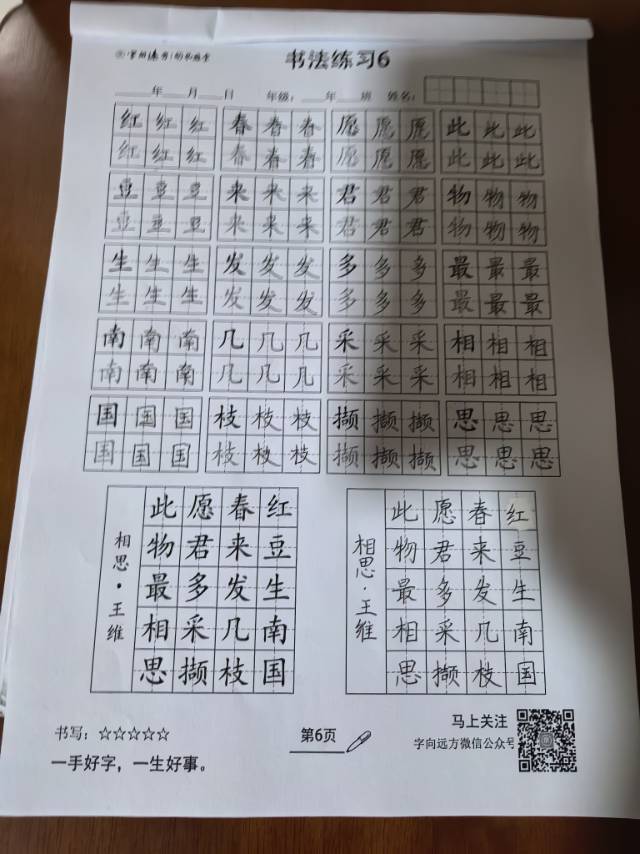 书法练习6
年 月 日 年级: 年 班 姓名:
红红红 春春春 愿愿愿 此此此
红红红 春春春 愿愿愿 此此此
豆豆豆 来来来 君君君 物物物
豆豆豆 来来来 君君君 物物物
生生生 发发发 多多多 最最最
生生生 发发发 多多多 最最最
南南南 几几几 采采采 相相相
南南南 几几几 采采采 相相相
国国国 枝枝枝 撷撷撷 思思思
国国国 枝枝枝 撷撷撷 思思思
红豆生南国
春来发几枝
愿君多采撷
此物最相思
相思·王维
红豆生南国
春来发几枝
愿君多采撷
此物最相思
相思·王维
书写:☆☆☆☆☆
一手好字,一生好事。
第6页
马上关注
字向远方微信公众号